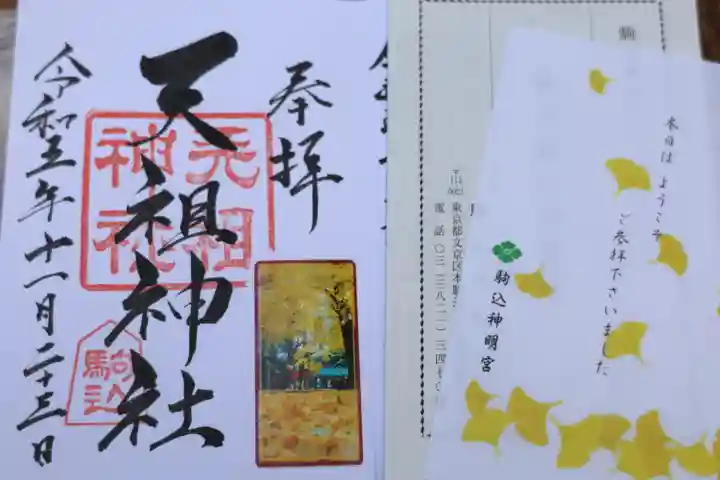 本日は ようこそ
ご参拝下さいました
駒込神明宮
駒
東京都文京区本駒
電話〇三ー三八二一ー三四
奉拝
天祖神社
天祖
神社
駒込
令和五年十一月二十三日